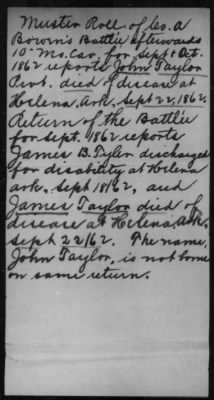 Muster Roll of Co. A
Bowen's Battle afterwards
10" Mo. Cav. for Sept & Oct.
1862 reports John Taylor
Pvt. died of disease at
Helena, Ark. Sept 22, 1862.
Return of the Battle
for Sept. 1862 reports
James B. Tyler discharged
for disability at Helena
Ark, Sept 18/62, and
James Taylor died of
disease at Helena, Ark.
Sept 22/62. The name,
John Taylor, is not borne
on same return.